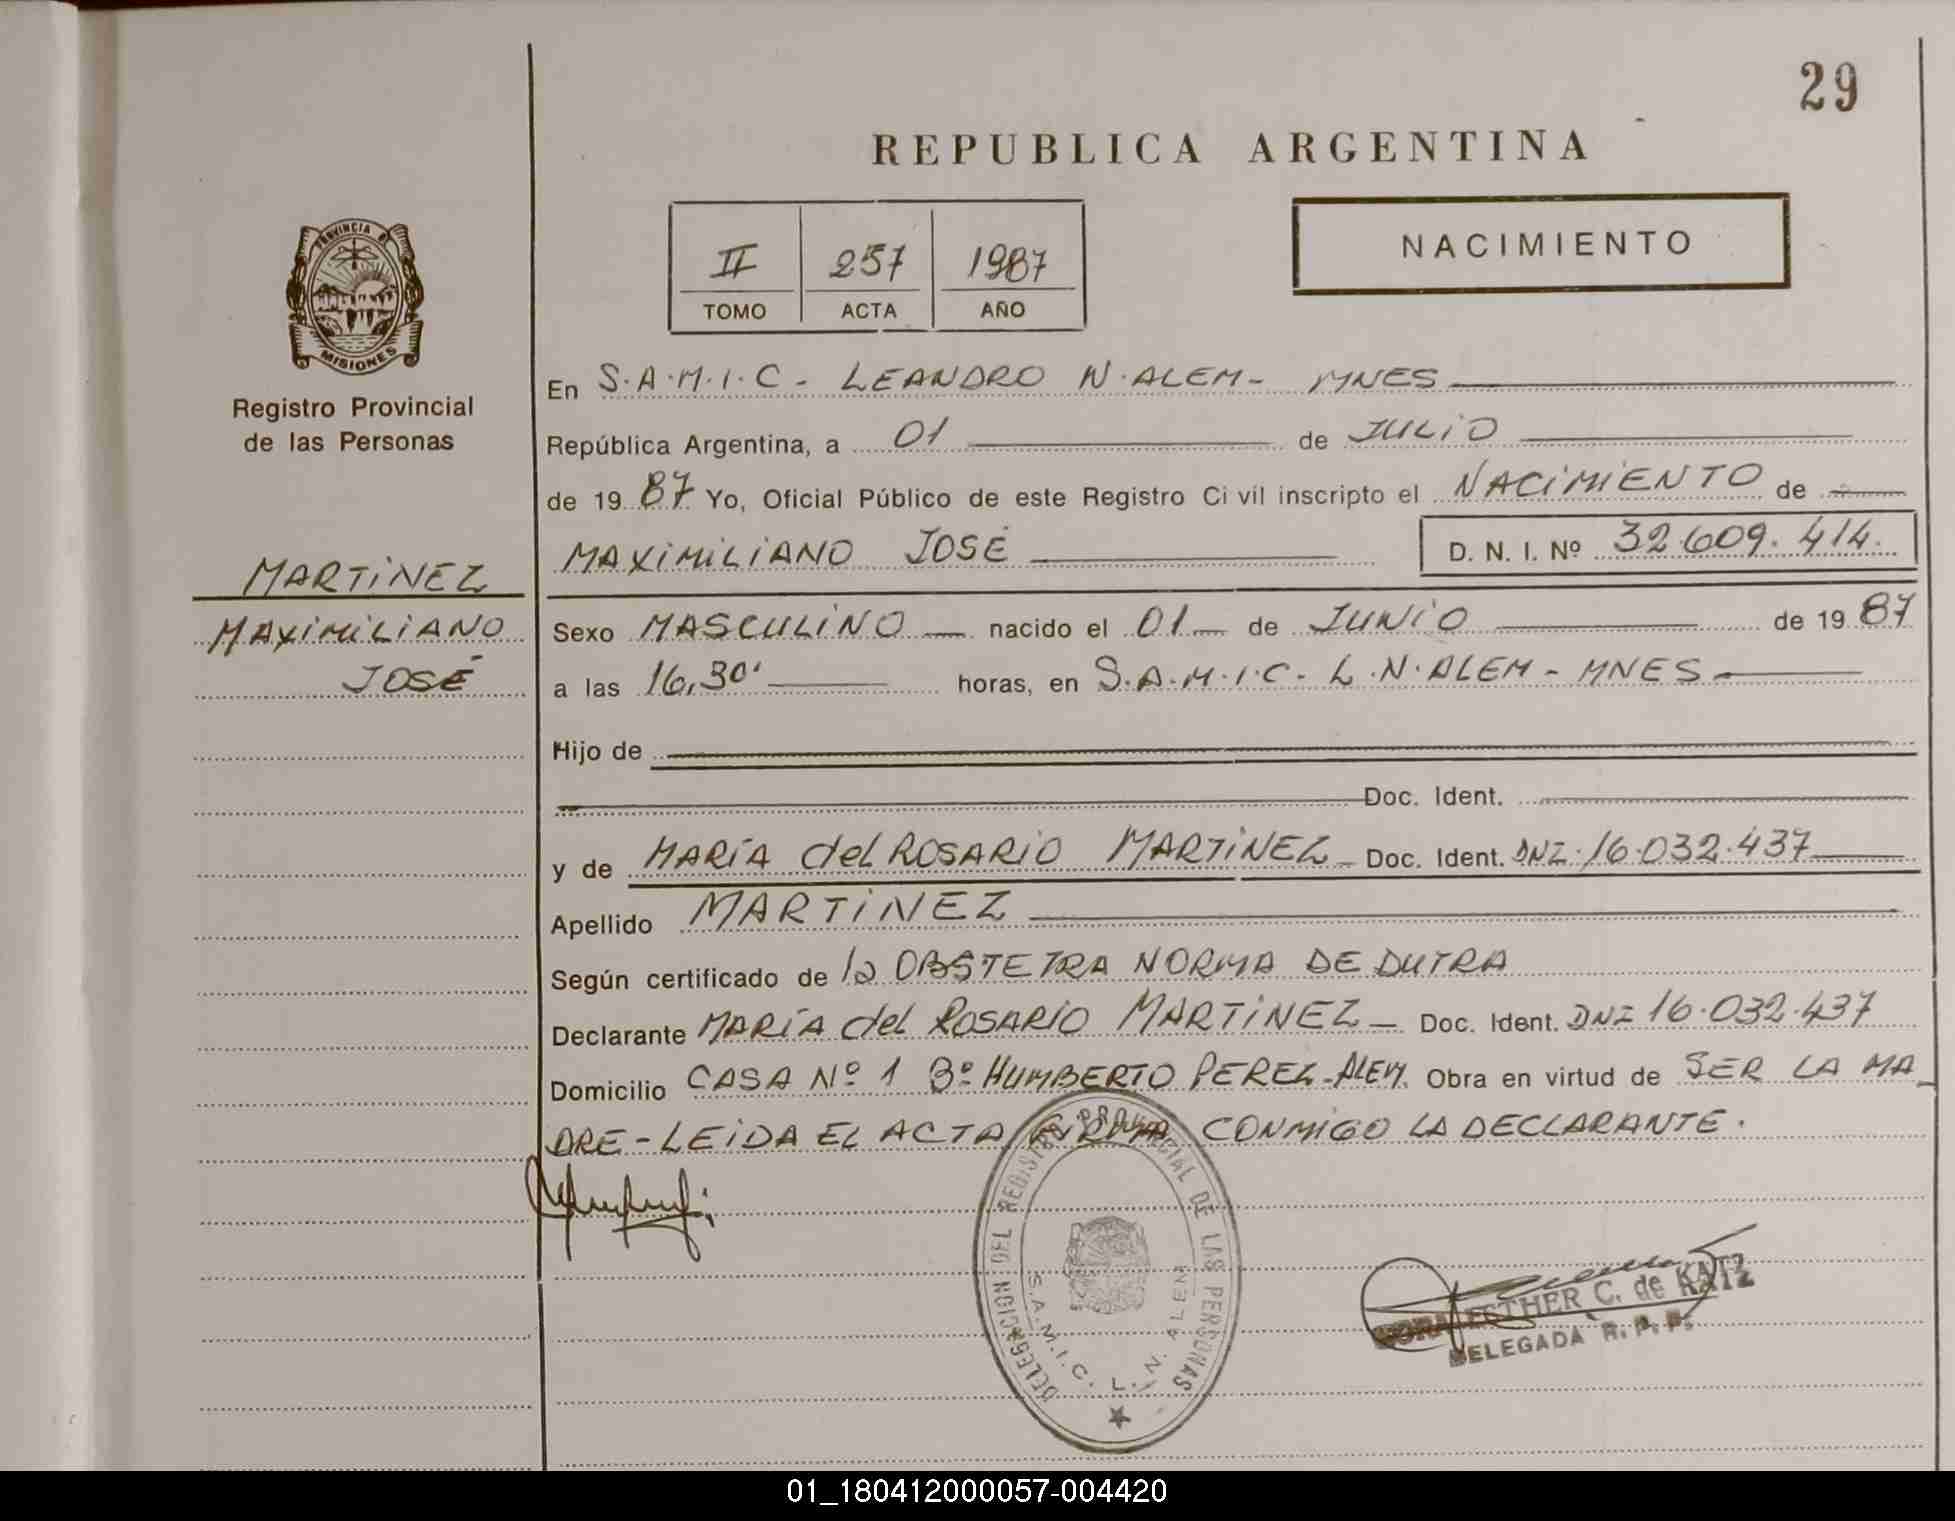 29
REPUBLICA ARGENTINA
II 257 1987
TOMO ACTA AÑO
NACIMIENTO
PROVINCIA DE
MISIONES
Registro Provincial
de las Personas
MARTINEZ
MAXIMILIANO
JOSÉ
En S.A.M.I.C - LEANDRO N. ALEM - MNES
República Argentina, a 01 de JULIO
de 19 87 Yo, Oficial Público de este Registro Civil inscripto el NACIMIENTO de
MAXIMILIANO JOSÉ D. N. I. Nº 32.609.414.
Sexo MASCULINO nacido el 01 de JUNIO de 19 87
a las 16,30' horas, en S.A.M.I.C - L.N. ALEM - MNES
Hijo de
Doc. Ident.
y de MARÍA del ROSARIO MARTINEZ Doc. Ident. DNI 16.032.437
Apellido MARTINEZ
Según certificado de la OBSTETRA NORMA DE DUTRA
Declarante MARÍA del ROSARIO MARTINEZ Doc. Ident. DNI 16.032.437
Domicilio CASA Nº 1 Bº HUMBERTO PEREZ - ALEM. Obra en virtud de SER LA MA_
DRE - LEIDA EL ACTA FIRMA CONMIGO LA DECLARANTE.
DELEGACION DEL REGISTRO PROVINCIAL DE LAS PERSONAS
S.A.M.I.C. L. N. ALEM
ESTHER C. de KATZ
DELEGADA R. P. P.
01_180412000057-004420